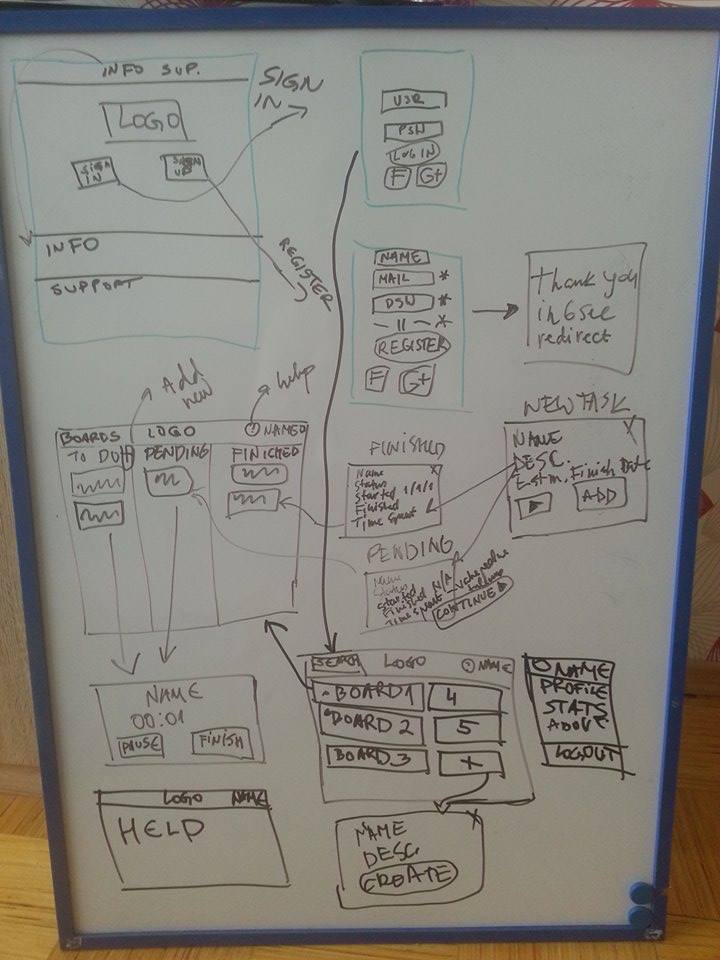 INFO SUP.
LOGO
SIGN IN
SIGN UP
INFO
SUPPORT
SIGN IN
REGISTER
USR
PSW
LOG IN
F G+
NAME
MAIL *
PSW *
— 11 — *
REGISTER
F G+
Thank you
in 6 sec
redirect
Add
new
help
BOARDS LOGO NAME
TO DO + PENDING FINICHED
FINISHED
Name X
Status
Started 1/1/1
Finished
Time spent
NEW TASK
NAME X
DESC.
Estm. Finish Date
ADD
PENDING
Name
Status
Started N/A
Finished
Time spent
CONTINUE
NAME
00:01
PAUSE FINISH
SEARCH LOGO NAME
BOARD 1 4
BOARD 2 5
BOARD 3 +
NAME
PROFILE
STATS
LOGOUT
LOGO NAME
HELP
NAME X
DESC.
CREATE